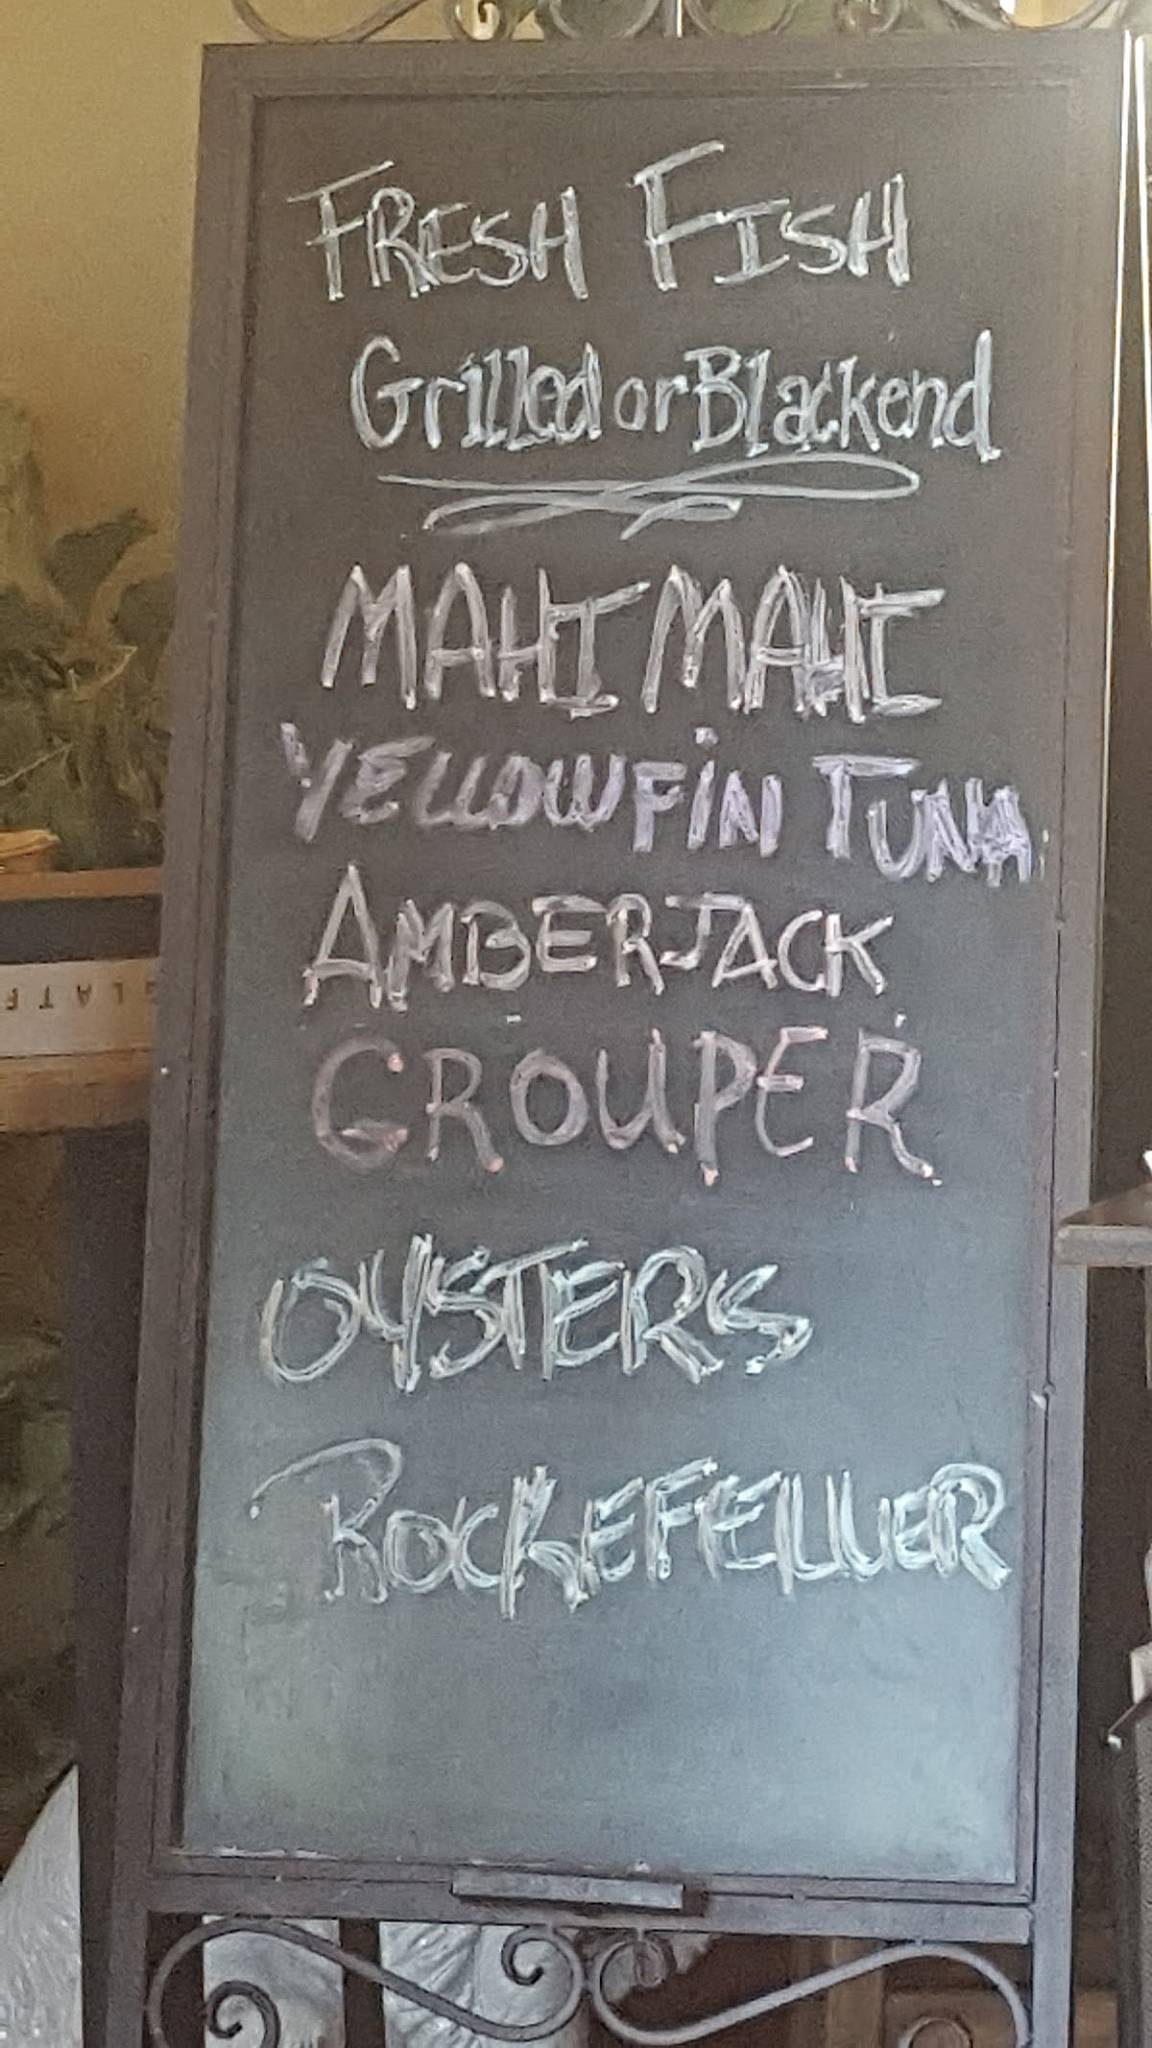 FRESH FISH
Grilled or Blackend
MAHI MAHI
YELLOWFIN TUNA
AMBERJACK
GROUPER
OYSTERS
ROCKEFELLER